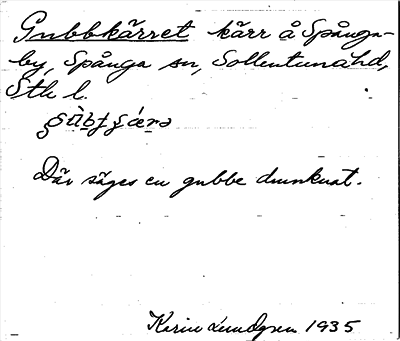 Gubbkärret kärr å Spånga-
by, Spånga sn, Sollentuna hd,
Sthlm l.
Där säges en gubbe drunknat.
Karin Lundgren 1935